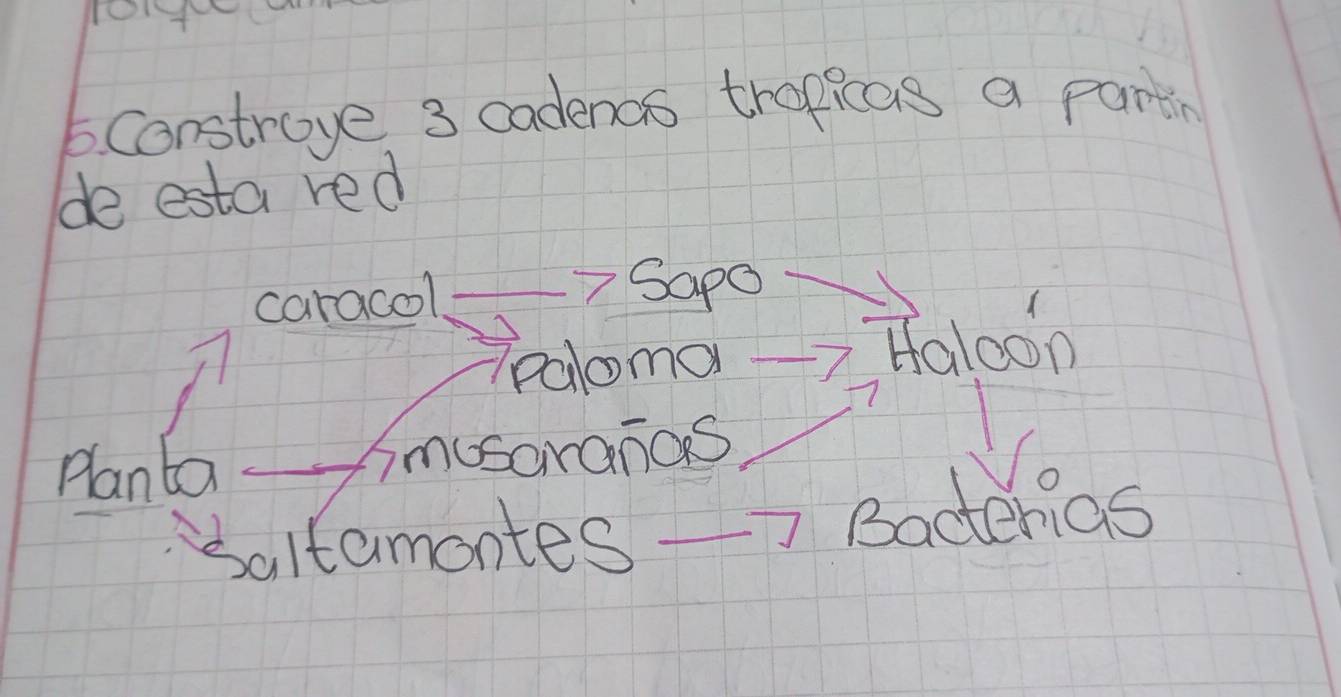 5. Construye 3 cadenas troficas a partir
de esta red
caracol → Sapo
Paloma → Halcón
Planta → musarañas
Saltamontes → Bacterias